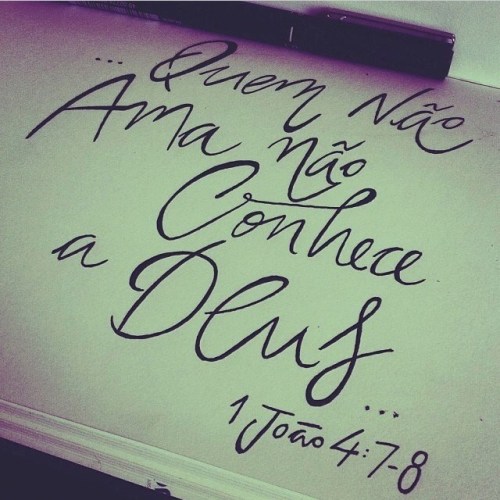 ... Quem Não
Ama não
Conhece
a Deus...
1 João 4:7-8